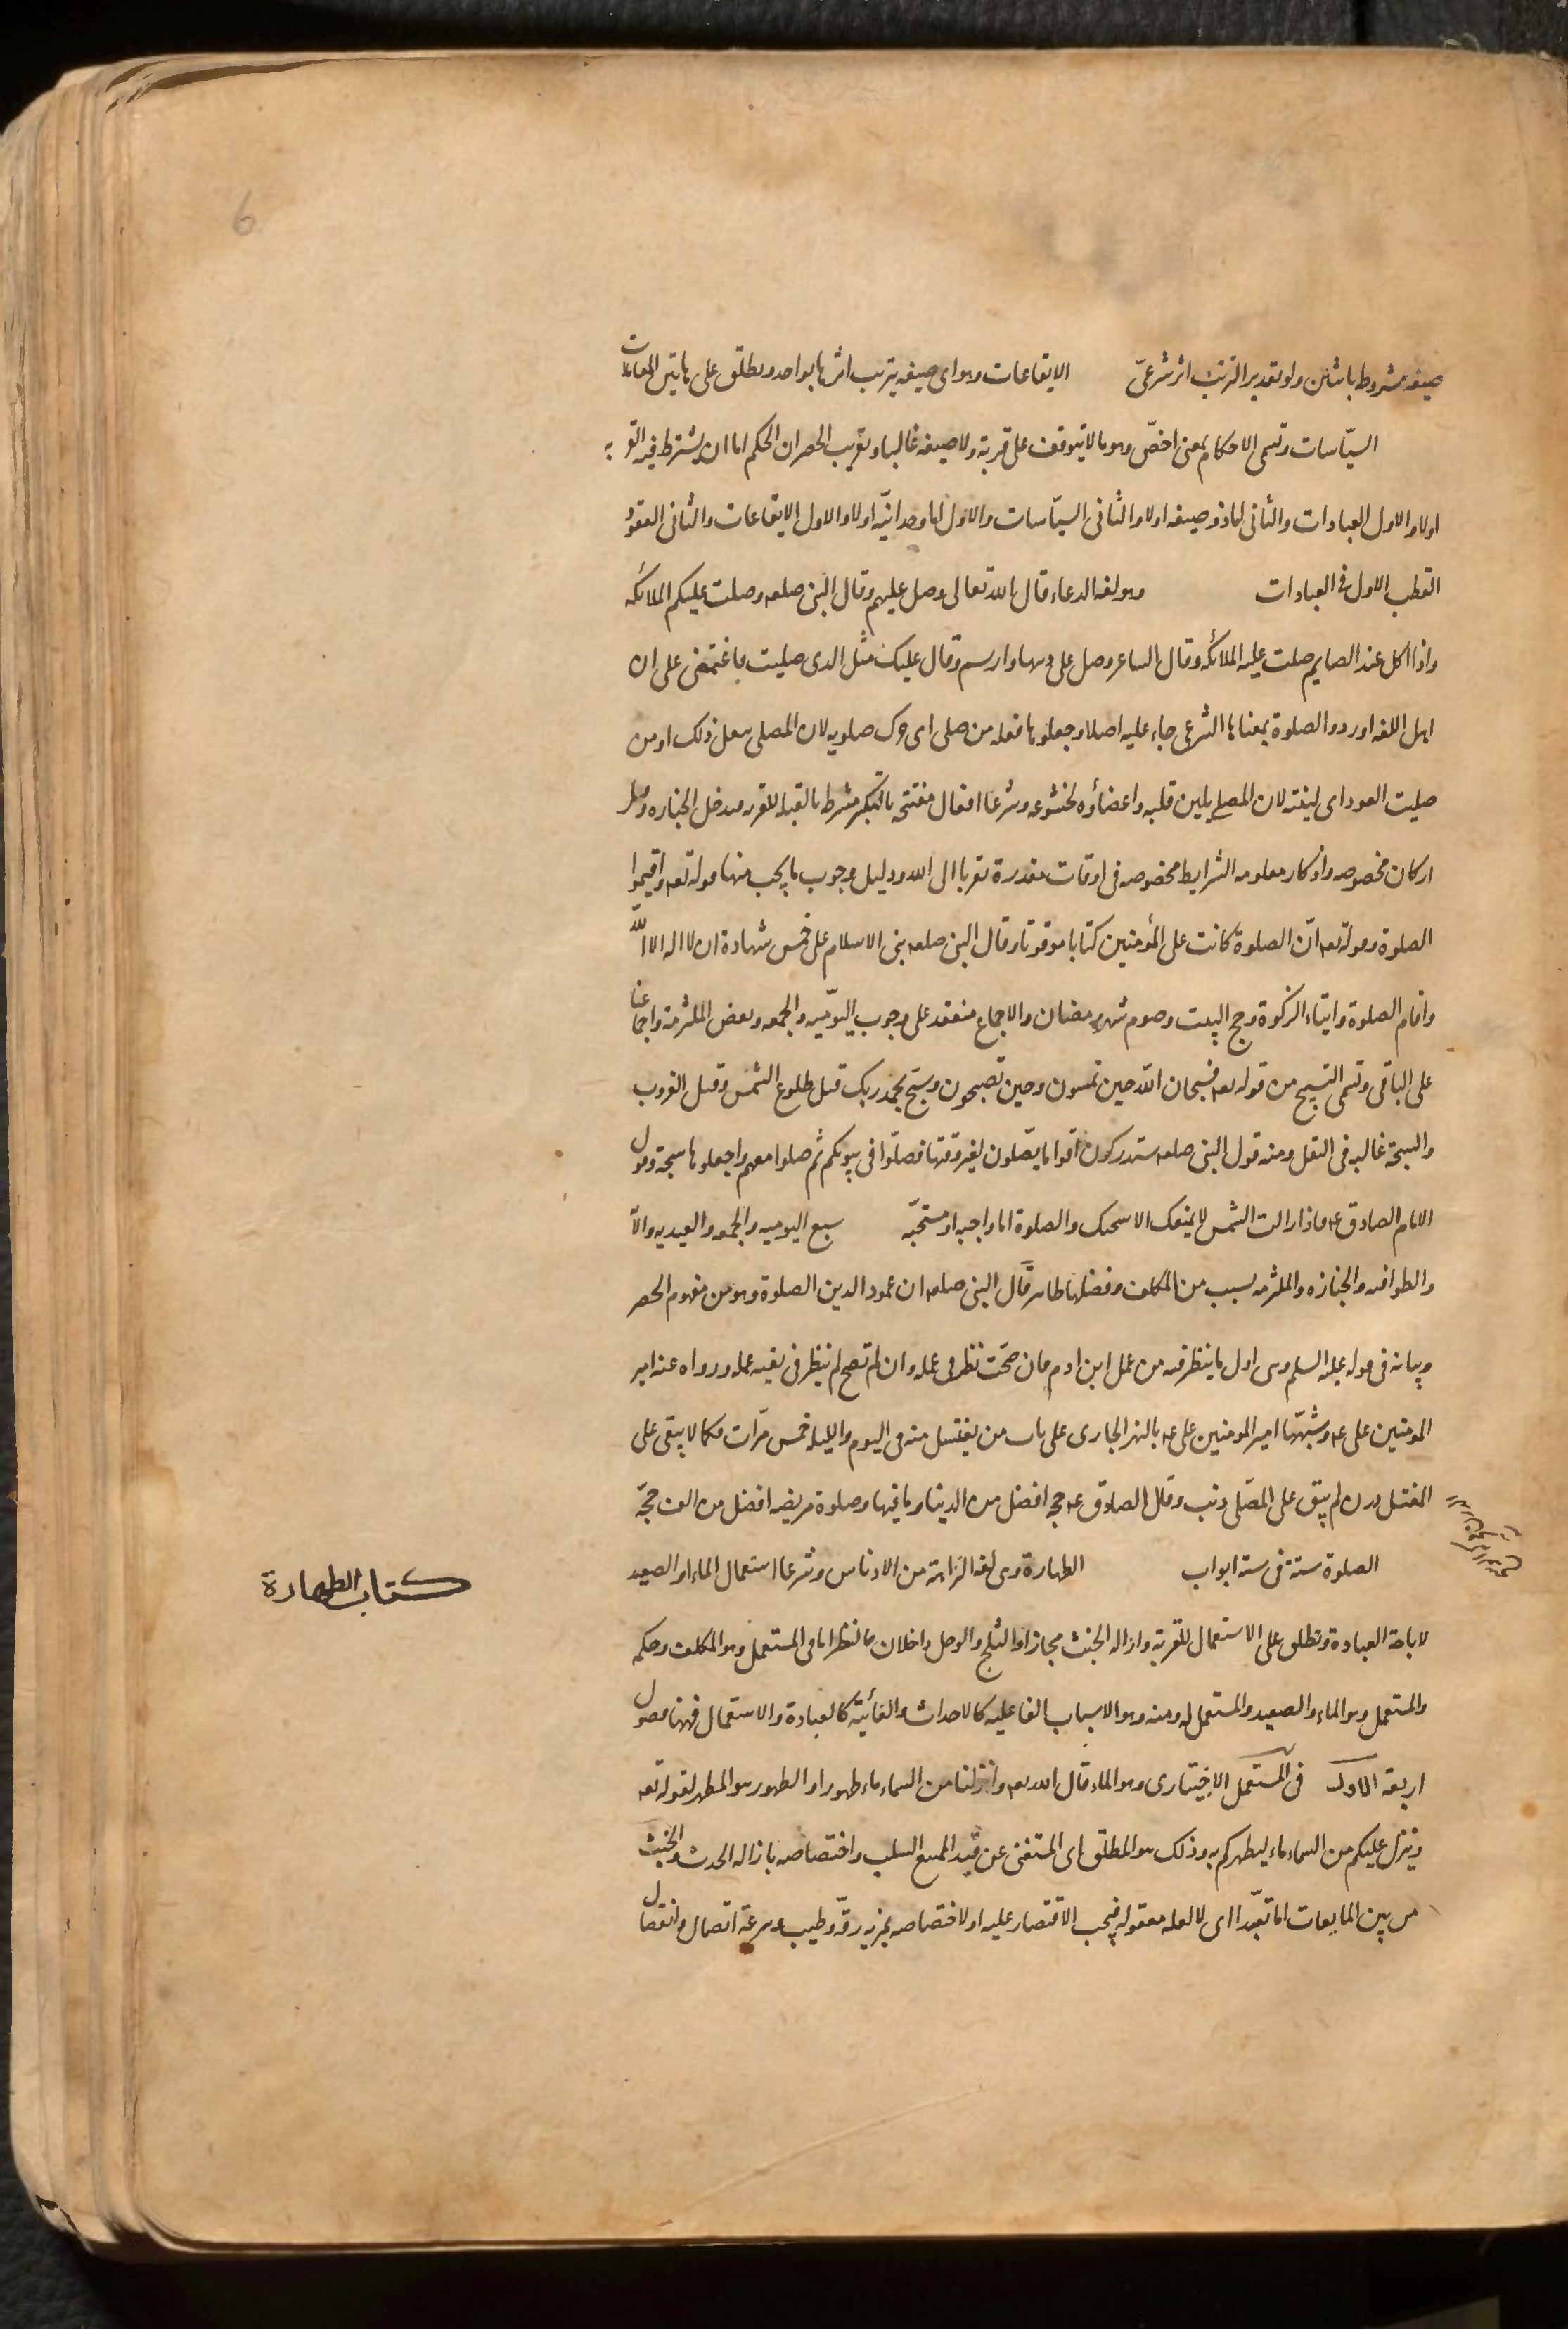 6
صيغة مشروط باثنين ولو تقديرا لترتب اثر شرعىّ الايقاعات وهو اى صيغه يترتب اثرها بواحد ويطلق على هاتين المعاملات
السيّاسات وتسمى الاحكام بمعنى اخصّ وهو ما لا يتوقف على قربة ولا صيغه غالبا وتقريب الحصر ان الحكم اما ان يشترط فيه القربه
اولا والاول العبادات والثانى اما ذو صيغه اولا والثانى السيّاسات والاول اما وحدانيّه اولا والاول الايقاعات والثانى العقود
القطب الاول فى العبادات وهو لغه الدعاء قال الله تعالى وصل عليهم وقال النبى صلعم وصلت عليكم الملائكه
واذا اكل عند الصايم صلت عليه الملائكه وقال الساعر وصل على دنها وارسم وقال عليك مثل الدى صليت فاغتمضى على ان
اهل اللغه اوردوا الصلوة بمعناها الشرعى جاء عليه اصلا وجعلوها فعله من صلى اى حرك صلويه لان المصلى يفعل ذلك او من
صليت العود اى لينته لان المصلى يلين قلبه واعضاؤه لخشوعه وشرعا افعال مفتتحه بالتكبير مشرط بالقبله للقربه فيدخل الجنازه وقيل
اركان مخصوصه واذكار معلومه الشرايط مخصوصه فى اوقات مقدرة تقربا الى الله ودليل وجوب ما يجب منها قوله تعه واقيموا
الصلوة وقوله تعه انّ الصلوة كانت على المؤمنين كتابا موقوتا وقال النبى صلعم بنى الاسلام على خمس شهادة ان لا اله الا الله
واقام الصلوة وايتاء الزكوة وحج البيت وصوم شهر رمضان والاجماع منعقد على وجوب اليوميّه والجمعه وبعض الملتزمة واجماعنا
على الباقى وتسمى التسبيح من قوله تعه فسبحان الله حين تمسون وحين تصبحون وسبّح بحمد ربك قبل طلوع الشمس وقبل الغروب
والسبحة غالبه فى النفل ومنه قول النبى صلعم ستدركون اقواما يصّلون لغير وقتها فصلّوا فى بيوتكم ثم صلوا معهم واجعلوها سبحة وقول
الامام الصادق عه فاذا زالت الشمس لا يمنعك الا سبحتك والصلوة اما واجبه او مستحبّه سبع اليوميه والجمعه والعيديه والآ
والطوافيه والجنازه والملتزمه بسبب من المكلف وفضلها ظاهر قال النبى صلعم ان عمود الدين الصلوة وهو من مفهوم الحصر
وبيانه فى قوله عليه السلم وهى اول ما ينظر فيه من عمل ابن ادم فان صحّت نظر فى عمله وان لم تصح لم ينظر فى بقيه عمله ورواه عنه امير
المؤمنين على عه وشبّهها امير المومنين على عه بالنهر الجارى على باب من يغتسل منه فى اليوم والليله خمس مرّات فكما لا يبقى على
المغتسل درن لم يبق على المصّلى ذنب وقال الصادق عه حجه افضل من الدنيا وما فيها وصلوة فريضه افضل من الف حجّه
الصلوة ستة فى ستة ابواب الطهارة وهى لغة النزاهة من الادناس وشرعا استعمال الماء او الصعيد
كتاب الطهارة
لاباحة العبادة وتطلق على الاستعمال للقربة وازاله الخبث مجازا والثلج والوحل داخلان فالنظر اما فى المستعمل وهو المكلف وحكمه
والمستعمل وهو الماء والصعيد والمستعمل له ومنه وهو الاسباب الفاعليه كالاحداث والغائيّه كالعبادة والاستعمال فههنا فصول
اربعة الاول فى المستعمل الاختيارى وهو الماء قال الله تعه وانزلنا من السماء ماء طهورا والطهور هو المطهر لقوله تعه
وينزل عليكم من السماء ماء ليطهركم به وذلك هو المطلق اى المستغنى عن قيد الممتنع السلب واختصاصه بازاله الحدث والخبث
من بين المايعات اما تعبّدا اى لا لعله معقوله فيجب الاقتصار عليه او لاختصاصه بمزيه رقّه وطيب وسرعة اتصال وانفصال